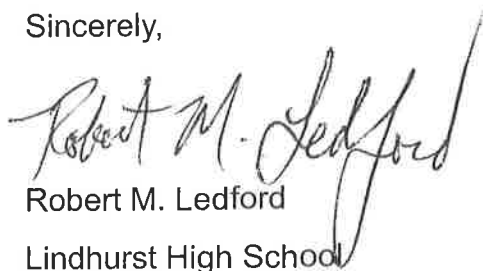 Sincerely,
Robert M. Ledford
Robert M. Ledford
Lindhurst High School